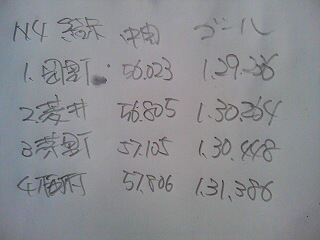 N4 結果 中間 ゴール
1. 56.023 1.29.36
2 菱井 56.805 1.30.264
3 菜野 57.105 1.30.448
4 57.806 1.31.386